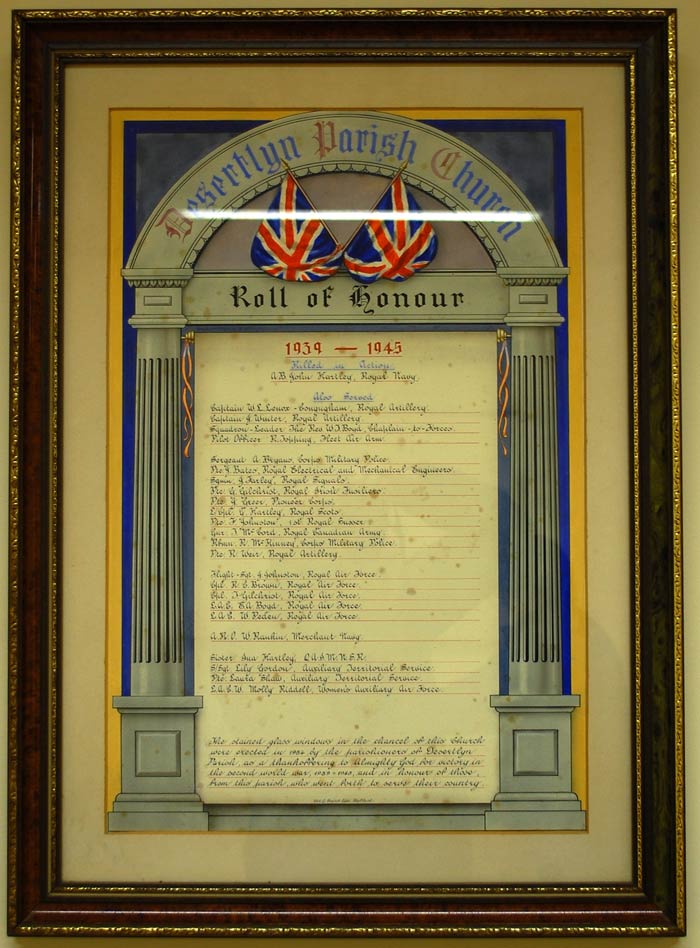 Desertlyn Parish Church
Roll of Honour
1939 — 1945
Killed in Action
A.B. John Hartley, Royal Navy.
Also Served
Captain W.L. Lenox-Conyngham, Royal Artillery.
Captain J. Winter, Royal Artillery.
Squadron-Leader The Rev W.J. Boyd, Chaplain-to-Forces.
Pilot Officer R. Topping, Fleet Air Arm.
Sergeant A. Bryans, Corps Military Police.
Pte. J. Bates, Royal Electrical and Mechanical Engineers.
J. Farley, Royal Signals.
Pte. G. Gilchrist, Royal Irish Fusiliers.
Pte. J. Greer, Pioneer Corps.
L/Cpl. C. Hartley, Royal Scots.
Pte. F. Johnston, 1st Royal Sussex.
Gnr. J. McCord, Royal Canadian Army.
R. McKinney, Corps Military Police.
Pte. R. Weir, Royal Artillery.
Flight-Sgt. J. Johnston, Royal Air Force.
Cpl. R. E. Brown, Royal Air Force.
Cpl. J. Gilchrist, Royal Air Force.
L.A.C. Boyd, Royal Air Force.
L.A.C. W. Peden, Royal Air Force.
A.R.O. W. Rankin, Merchant Navy.
Sister Ina Hartley, Q.A.I.M.N.S.R.
S/Sgt. Lily Gordon, Auxiliary Territorial Service.
Pte. Laula Shaw, Auxiliary Territorial Service.
L.A.C.W. Molly Riddell, Women's Auxiliary Air Force.
The stained glass windows in the chancel of this Church
were erected in by the parishioners of Desertlyn
Parish, as a thankoffering to Almighty God for victory in
the second world war, 1939-1945, and in honour of those,
from this parish, who went forth to serve their country.